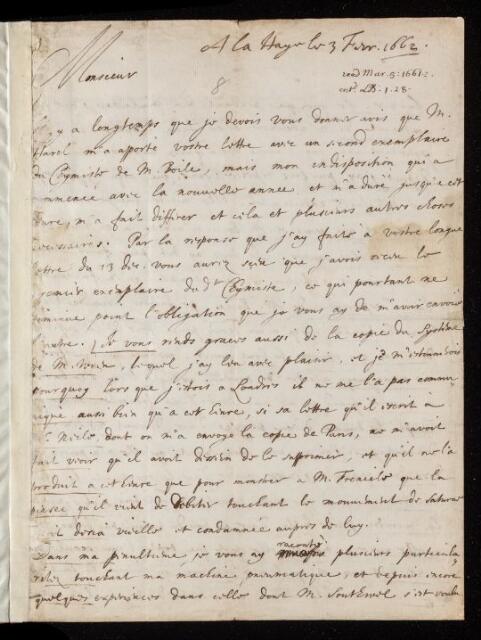 A la Haye le 3 Fevr. 1662.
Monsieur
read Mar. 5: 1661/2:
ent. LB: 1. 28.
8
Il y a longtemps que je devois vous donner avis que M.
m'a apporté vostre lettre avec un second exemplaire
du Chymiste de M. Boile, mais mon indisposition qui a
commencè avec la nouvelle annee et m'a durè jusqu'a cet
heure, m'a fait differer et cela et plusieurs autres choses
necessaires. Par la response que j'ay faite a vostre longue
lettre du 13 dec. vous aurez sceu que j'avois receu le
premier exemplaire du dt. Chymiste, ce qui pourtant ne
diminue point l'obligation que je vous ay de m'avoir envoiè
l'autre. Je vous rends graces aussi de la copie du Systeme
de M. Wren, lequel j'ay leu avec plaisir, et je m'estonnerois
pourquoy lors que j'estois a Londres il ne me l'a pas commu-
niquè aussi bien qu'a cet heure, si sa lettre qu'il escrit à
Neile, dont on m'a envoyè la copie de Paris, ne m'avoit
fait voir qu'il avoit dessein de le supprimer, et qu'il ne l'a
produit a cet heure que pour monstrer a M. Frenicle que la
pensee qu'il vient de debiter touchant le mouvement de Saturne
est desia vieille et condamnée aupres de luy.
Dans ma penultieme je vous ay racontè plusieurs particula-
ritez touchant ma machine pneumatique, et depuis encore
quelques experiences dans celle dont M. Soutwel s'est voulu